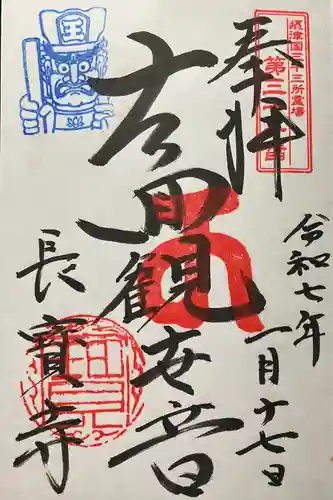 摂津国三十三所霊場
奉拝
十一面観世音
令和七年一月十七日
長寳寺
王